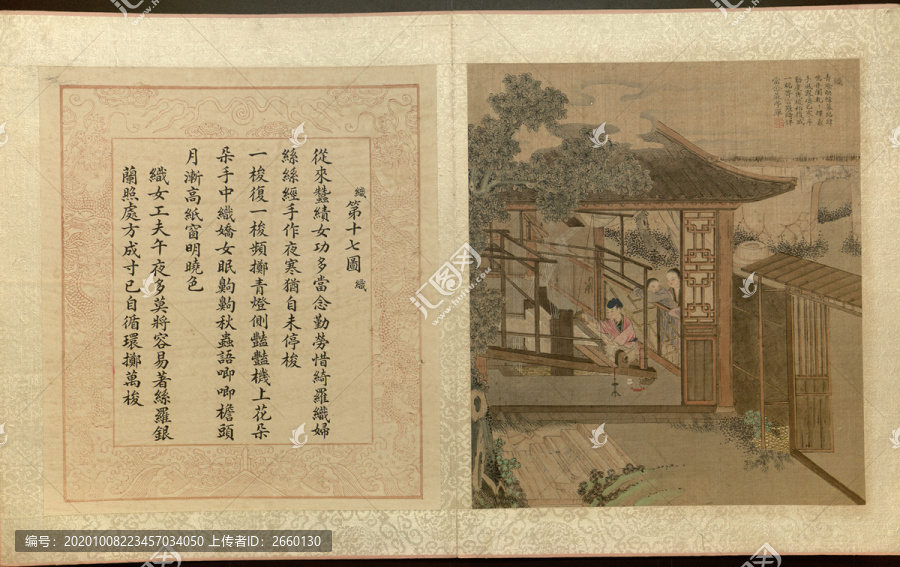 織 第十七圖 織
從來蠶績女功多當念勤勞惜綺羅織婦
絲絲經手作夜寒猶自未停梭
一梭復一梭頻擲青燈側豔豔機上花朵
朵手中織嬌女眠齁齁秋蟲語唧唧檐頭
月漸高紙窗明曉色
織女工夫午夜多莫將容易著絲羅銀
蘭照處方成寸已自循環擲萬梭
織
一梭
汇图网
编号: 20201008223457034050 上传者ID: 2660130